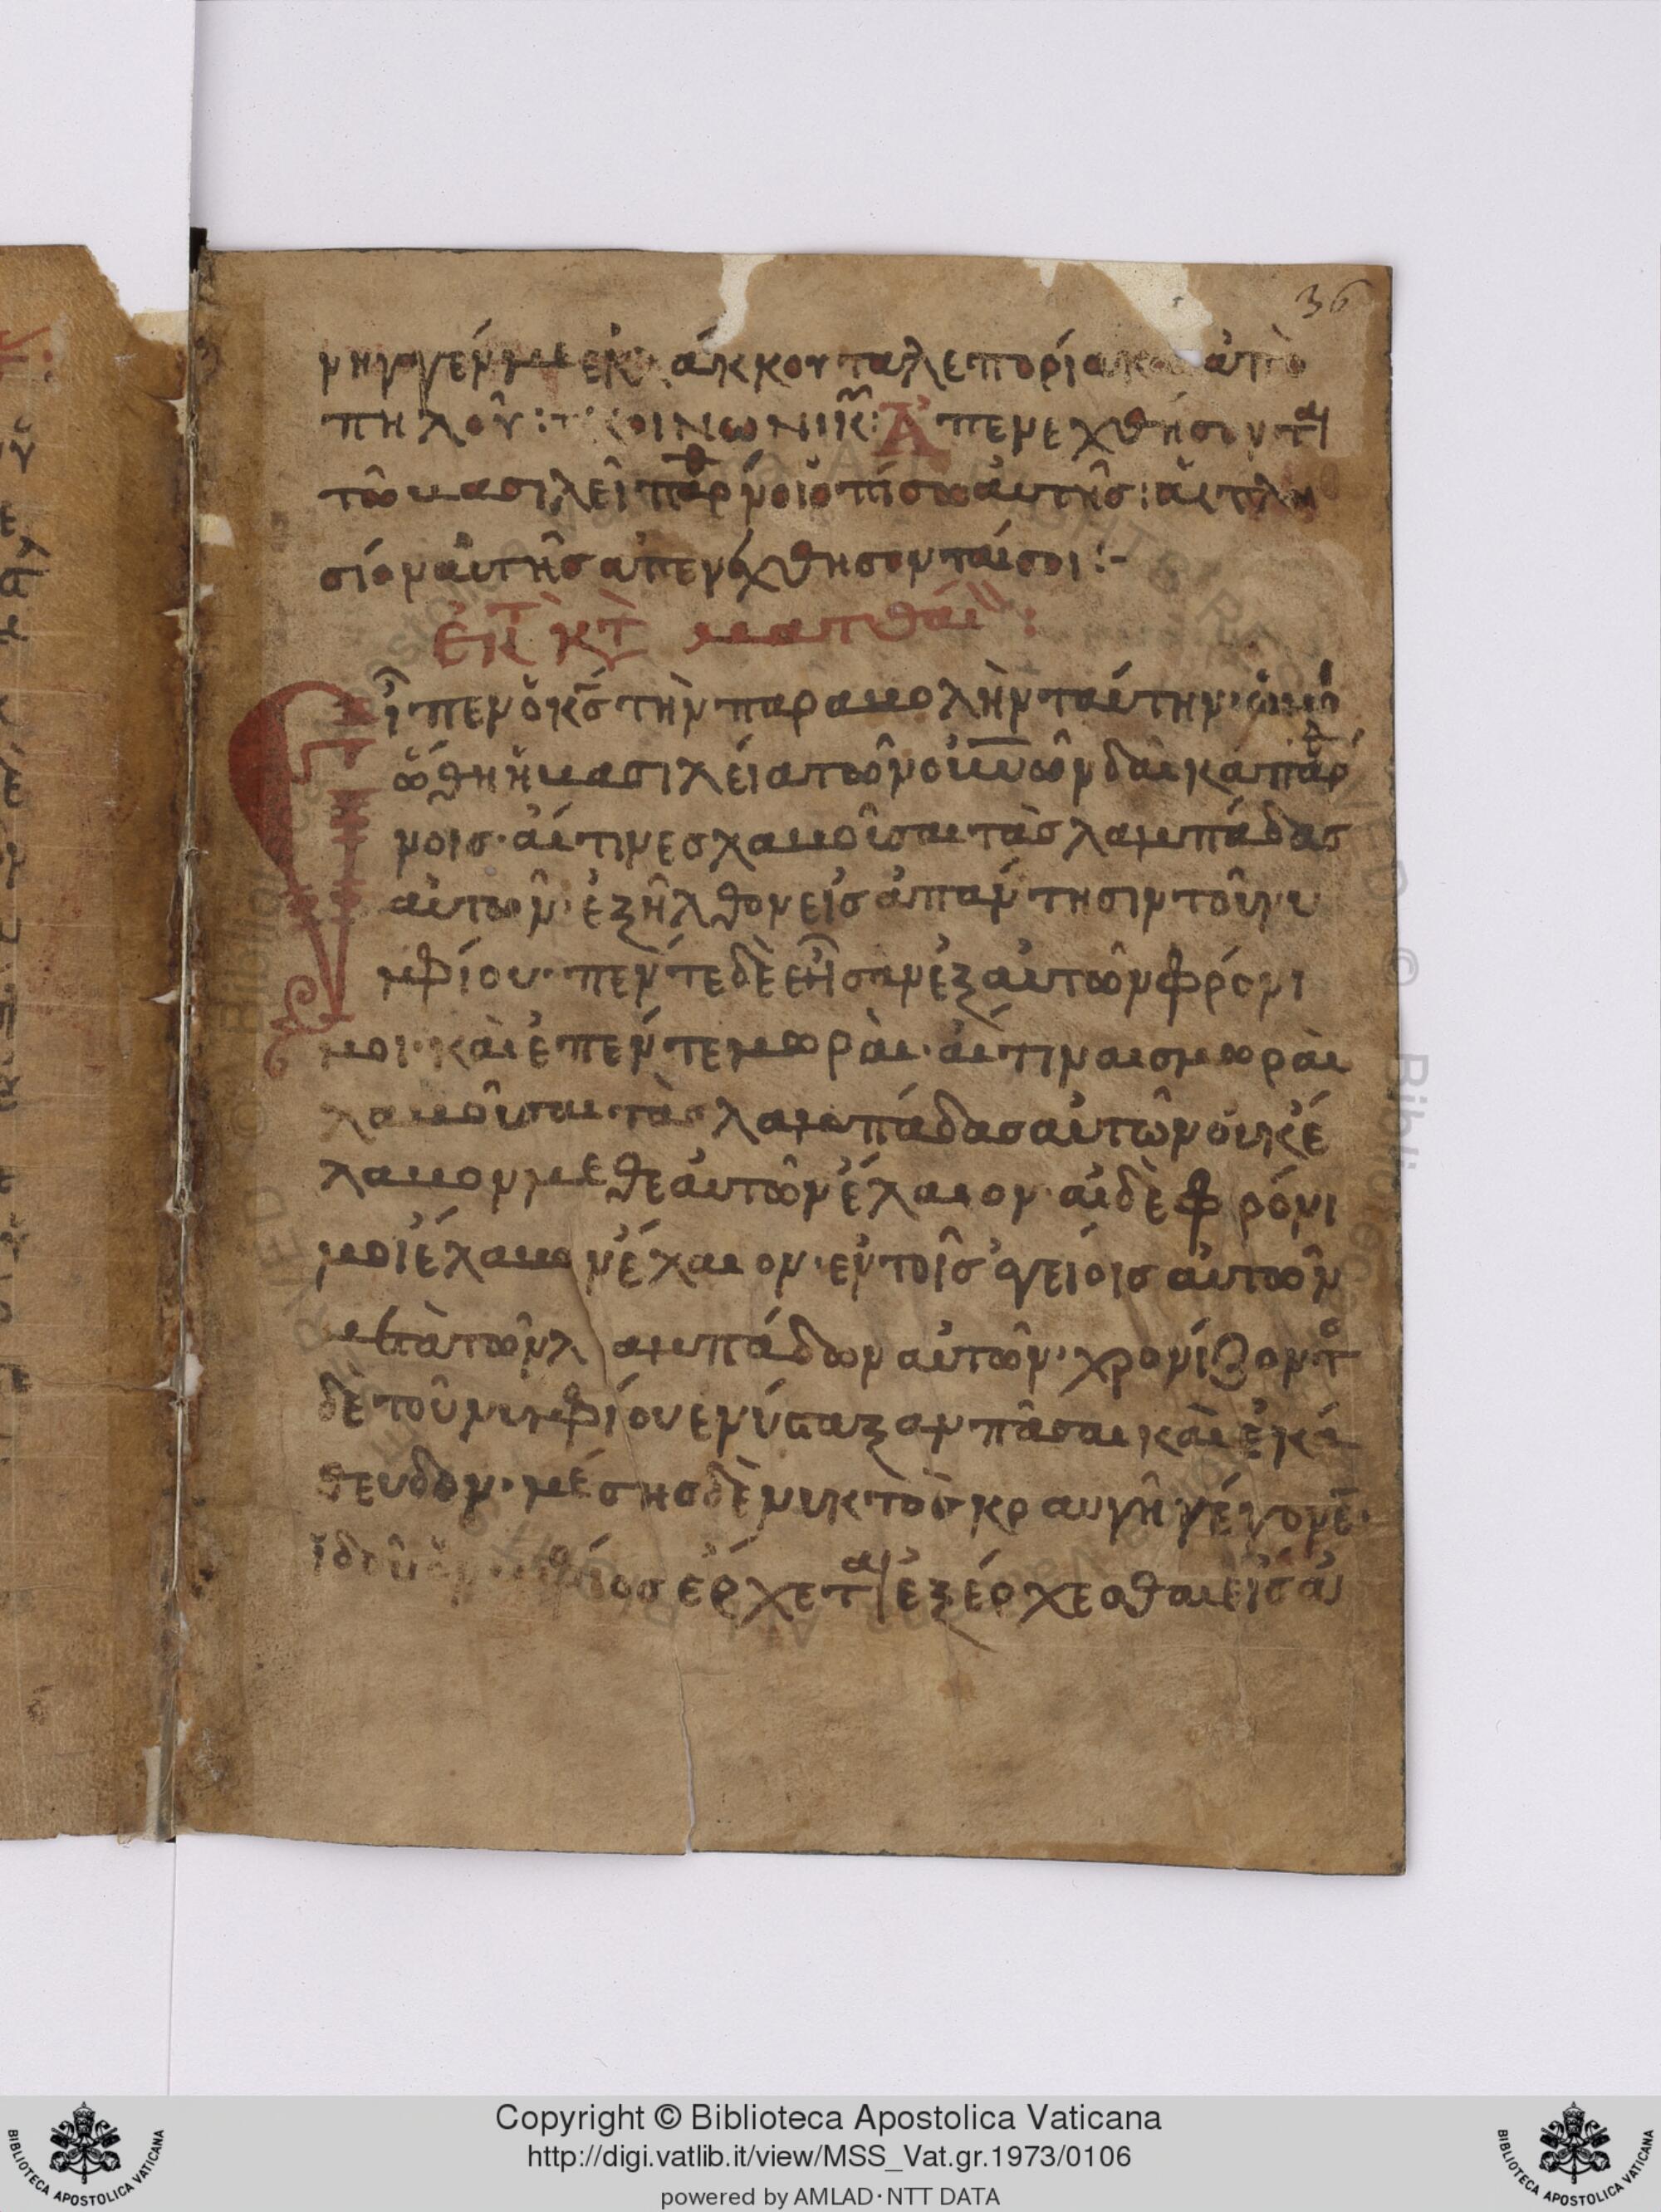 36
νηγαγέν με ἐκ λάκκου ταλεπορίας κ ἀπὸ
πηλοῦ: τ κοινωνικ: Ἀπενεχθήσοντ
τῶ βασιλεῖ παρθ́νοι ὀπίσω ἀυτῆς: ἁι πλη
σίον ἀυτῆς ἀπενεχθήσονται σοι:-
ἐκ τ κτ ματθαῖ:
Εἶπεν ὁ κς τὴν παραβολὴν ταύτην· ὡμοι
ώθη ἡ βασιλεία τῶν ουνῶν δέκα παρθέ
νοις· ἅιτινες λαβοῦσαι τὰς λαμπάδας
ἀυτῶν· ἐξῆλθον εἰς ἀπάντησιν τοῦ νυ
μφίου· πέντε δὲ εἦσαν ἐξ ἀυτῶν φρόνι
μοι· κὰι ἐ πέντε μωρὰι· ἅιτιναις μωρὰι
λαβοῦσαι τὰς λαμπάδας ἀυτῶν ὀυκ ἔ
λαβον μεθε ἀυτῶν ἔλαιον· ἁι δὲ φρόνι
μοι ἔλαβον ἔλαιον· ἐν τοῖς ἀγείοις ἀυτῶν
μετὰ τῶν λαμπάδων ἀυτῶν· χρονίζοντο
δὲ τοῦ νυμφίου ἐνύσταξαν πᾶσαι κὰι ἐκά
θευδον· μέσης δὲ νυκτὸς κραυγὴ γέγονεν·
ἰδοῦ ὁ νυμφίος ἔρχεται ἐξέρχεσθαι εἰς ἀ
Copyright © Biblioteca Apostolica Vaticana
http://digi.vatlib.it/view/MSS_Vat.gr.1973/0106
powered by AMLAD·NTT DATA
BIBLIOTECA APOSTOLICA VATICANA
BIBLIOTECA APOSTOLICA VATICANA